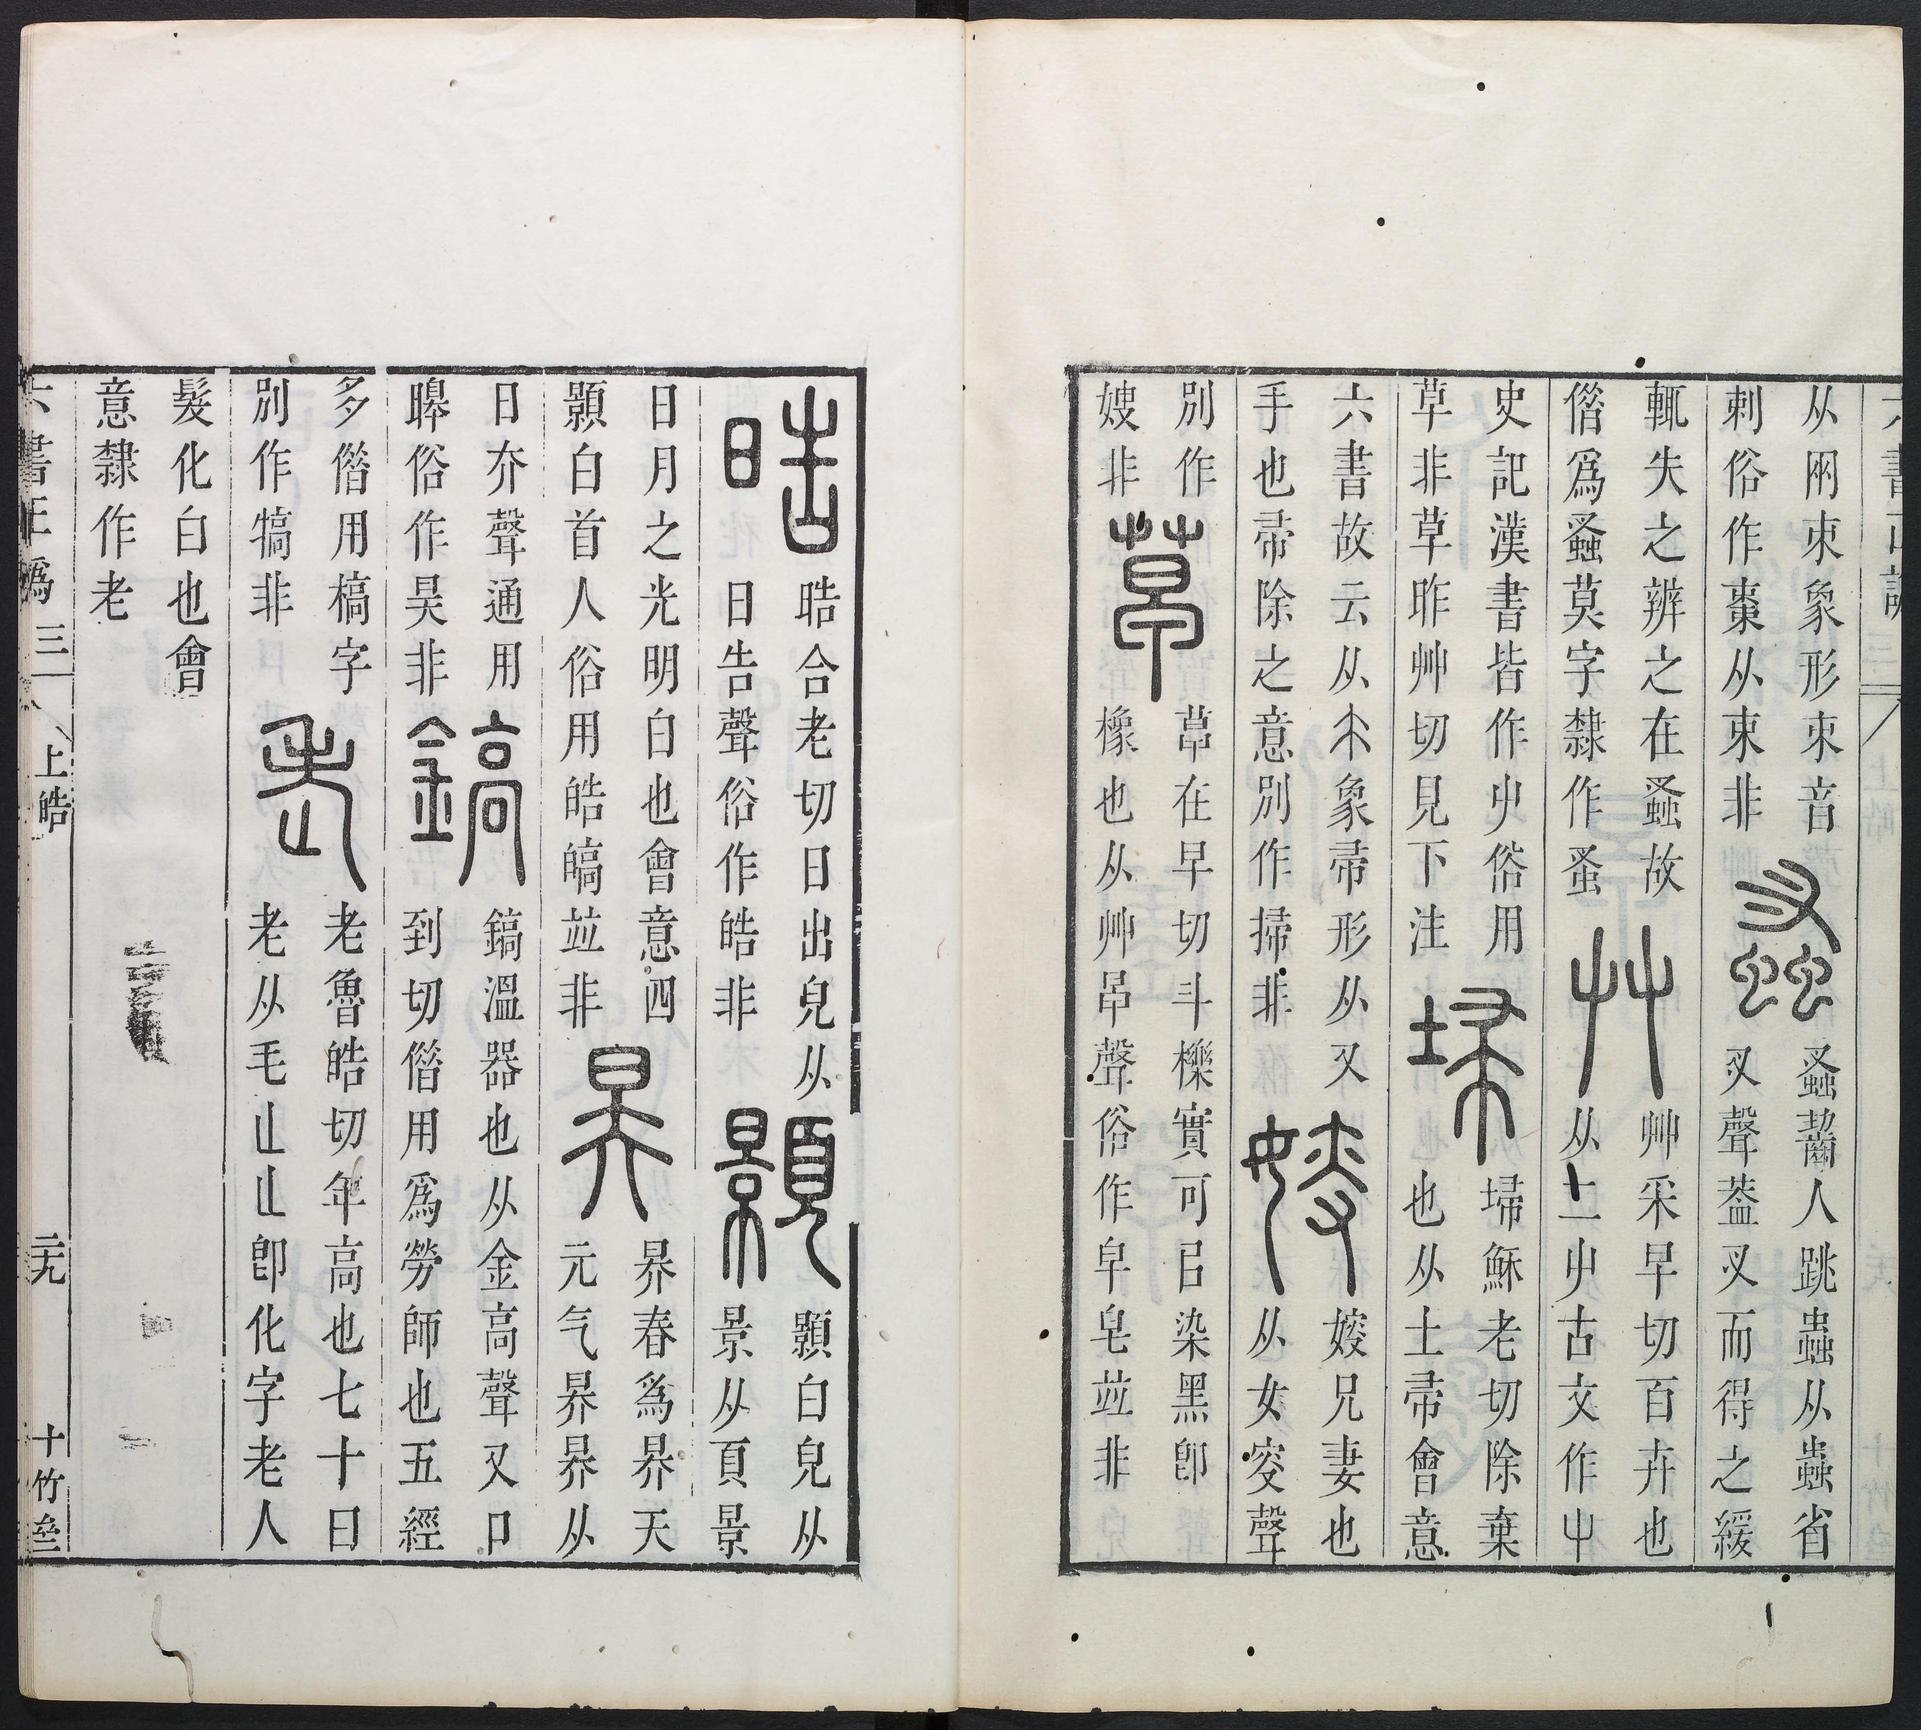 六書正譌 三 上皓
从兩朿象形朿音
刺俗作棗从束非
蚤
蚤齧人跳蟲从䖵省
叉聲葢叉而得之緩
輒失之辨之在蚤故
僭爲蚤莫字隸作蚤
艸
艸采早切百卉也
从二屮古文作屮
史記漢書皆作屮俗用
草非草昨艸切見下注
埽
埽穌老切除棄
也从土帚會意
六書故云从木象帚形从又
手也帚除之意別作掃非
㛮
㛮兄妻也
从女叜聲
別作
嫂非
草
草在早切斗櫟實可㠯染黑卽
橡也从艸早聲俗作皁皂竝非
晧
晧合老切日出皃从
日告聲俗作皓非
顥
顥白皃从
景从頁景
日月之光明白也會意四
顥白首人俗用皓皜竝非
昦
昦春爲昦天
元气昦昦从
日夰聲通用
暤俗作昊非
鎬
鎬溫器也从金高聲又口
到切僭用爲勞師也五經
多僭用槁字
別作犒非
老
老魯皓切年高也七十曰
老从毛𠤎𠤎卽化字老人
髮化白也會
意隸作老
六書正譌 三 上皓 二九 十竹